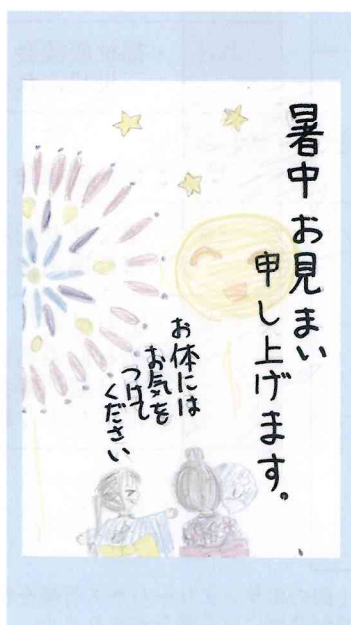 暑中お見まい
申し上げます。
お体には
お気を
つけて
ください